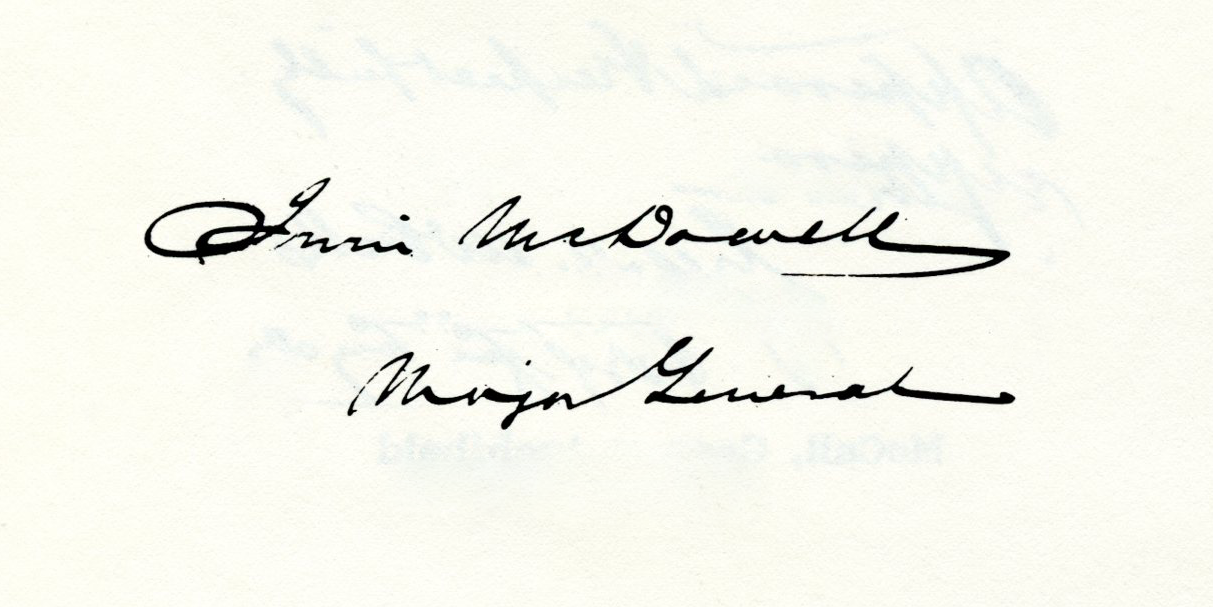 Irvin McDowell
Major General